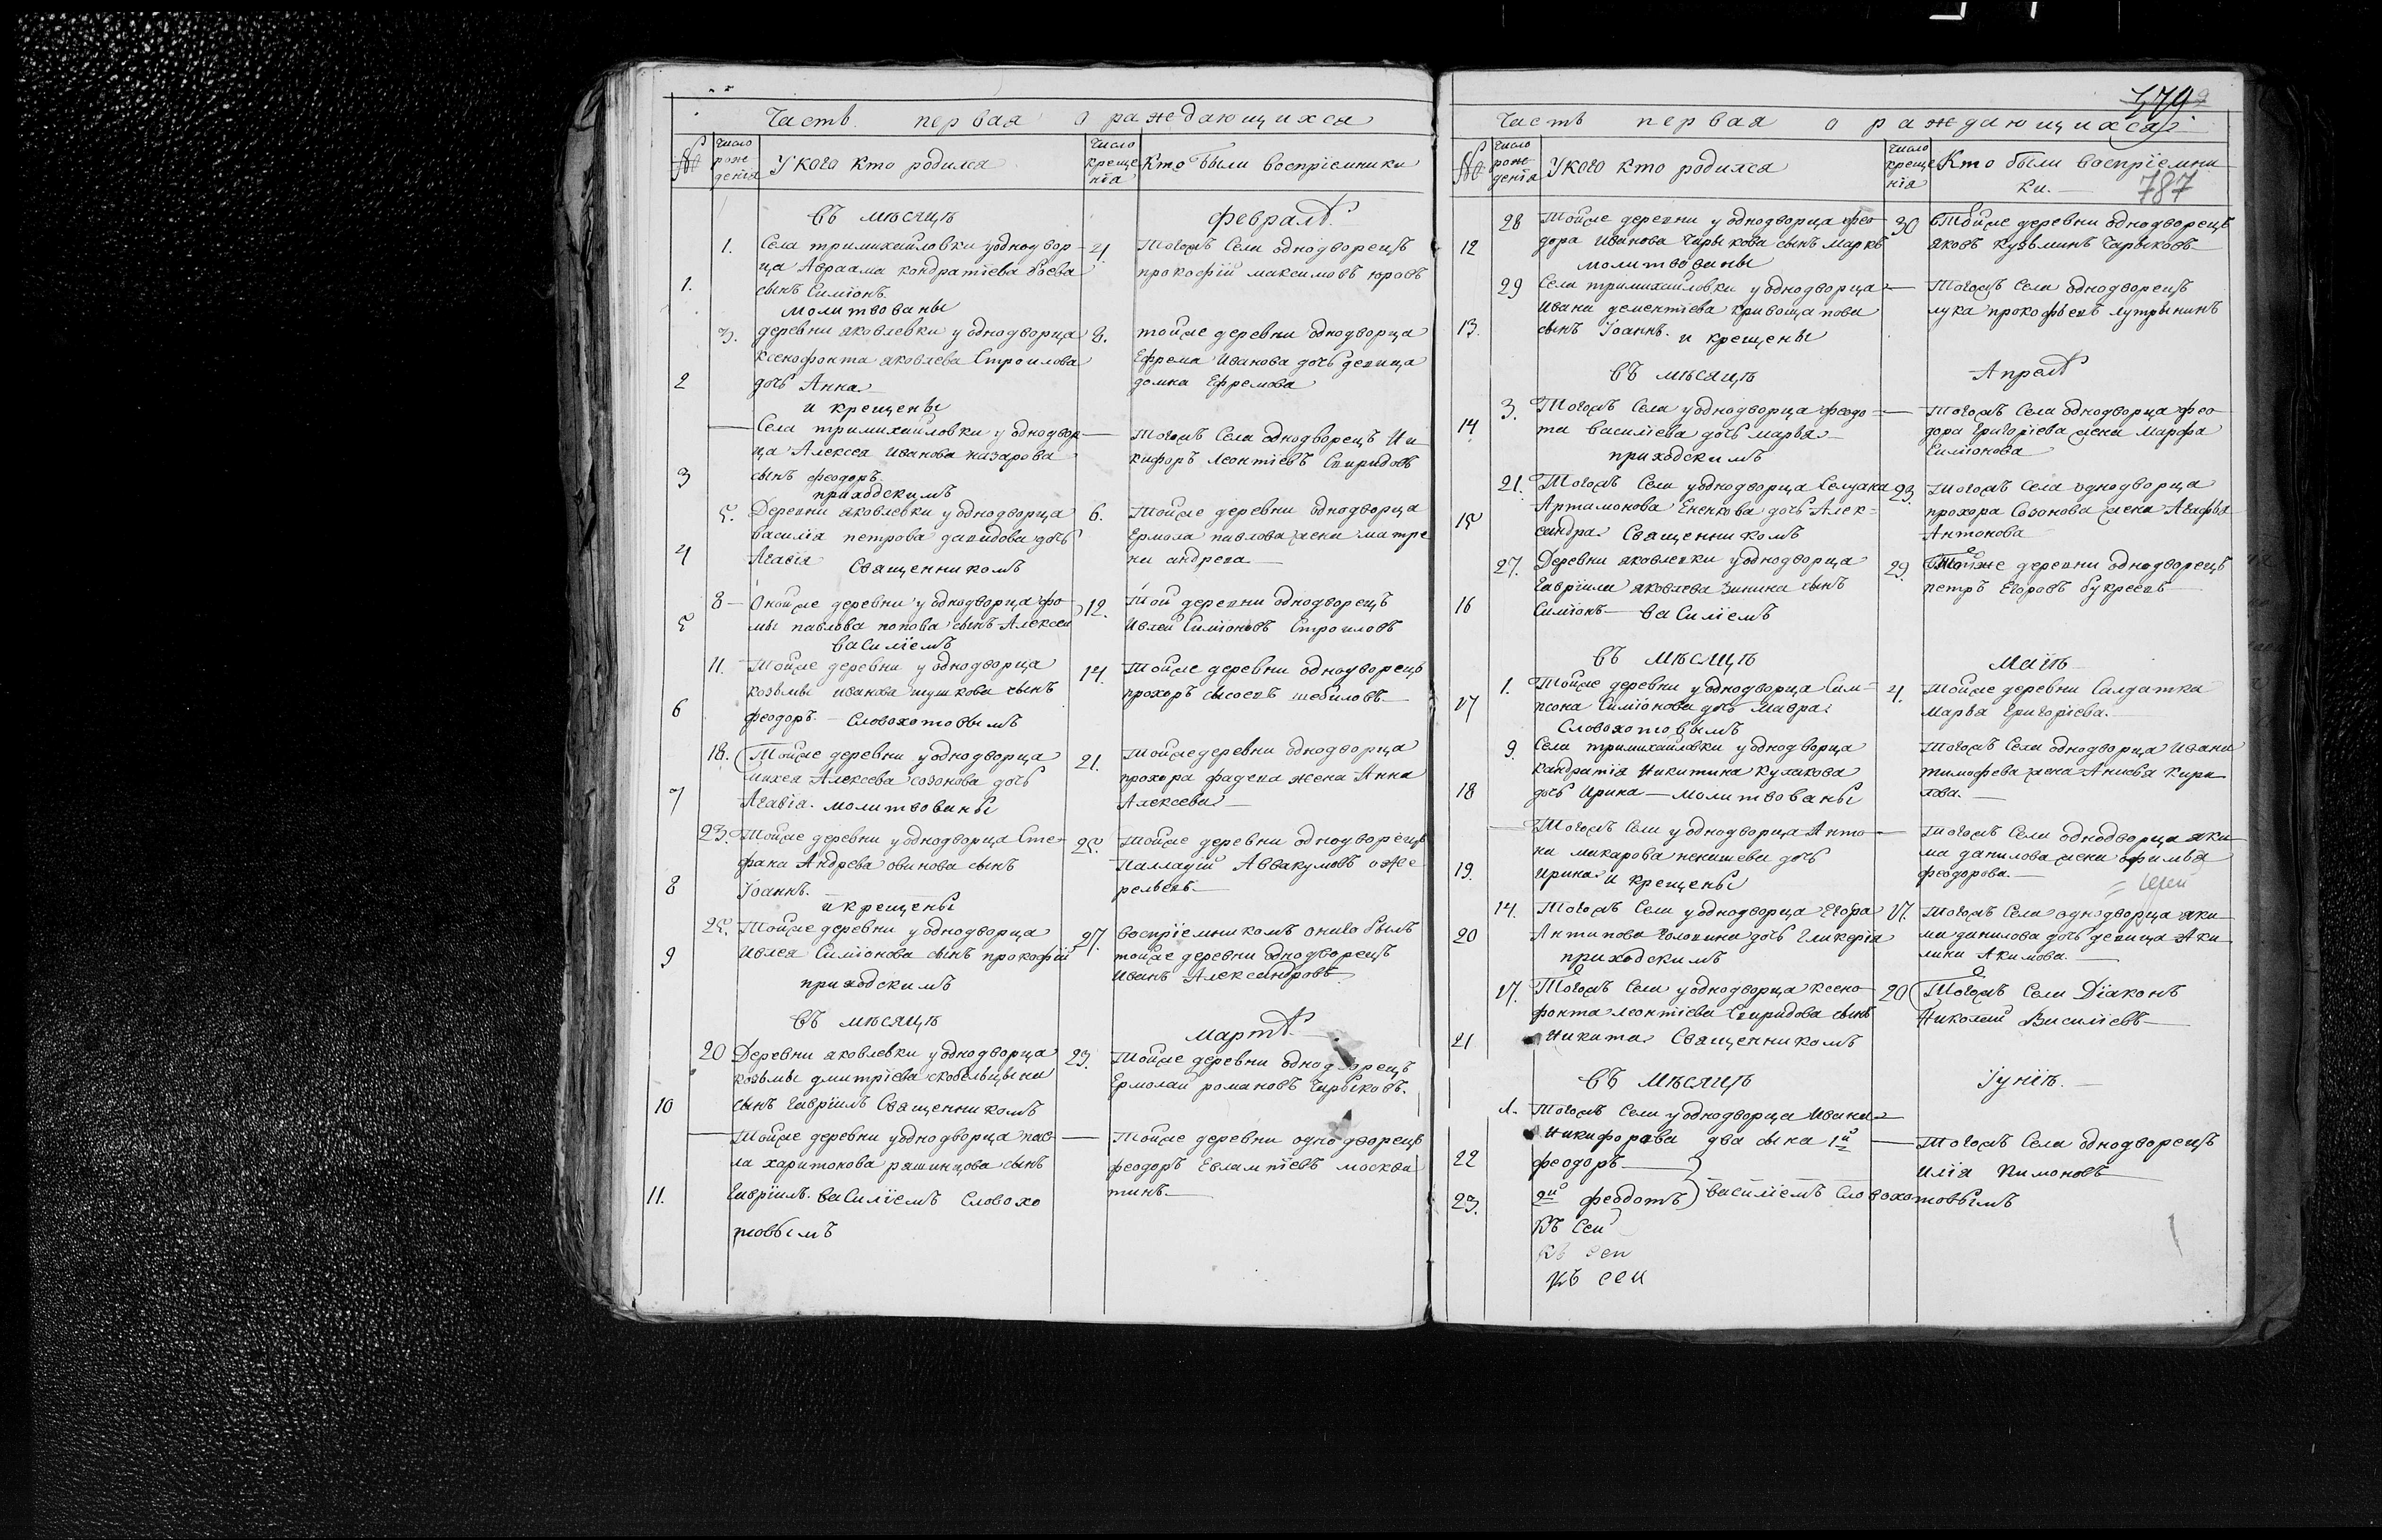 Часть первая о раждающихся
№
число рожденія
У кого кто родился
число крещенія
Кто были воспріемники
въ мѣсяцѣ
февралѣ
1.
1.
Села тримихайловки у однодвор-
ца Авраама кондратіева боева
сынъ Симіонъ.
молитвованы
4.
Тогожъ Села однодворецъ
прокофій максимовъ юровъ
2
3.
деревни яковлевки у однодворца
ксенофонта яковлева Строилова
дочь Анна
и крещены
8.
тойже деревни однодворца
Ефрема Иванова дочь девица
домна Ефремова
3
—
Села тримихайловки у однодвор-
ца Алексея Иванова назарова
сынъ феодоръ.
приходскимъ
—
Тогожъ Села однодворецъ Ни
кифоръ Леонтіевъ Спиридовъ
4
5.
Деревни яковлевки у однодворца
василія петрова давидова дочь
Агавія Священникомъ
6.
Тойже деревни однодворца
Ермола павлова жена матре
на андрева
5
8
Онойже деревни у однодворца фо
мы павлова попова сынъ Алексей
василіемъ
12.
Той деревни однодворецъ
Ивлей Симіоновъ Строиловъ
6
11.
Тойже деревни у однодворца
козьмы иванова шушкова сынъ
феодоръ. Словохотовымъ
14.
Тойже деревни однодворецъ
прохоръ сысоевъ шебиловъ
7
18.
Тойже деревни у однодворца
михея Алексева созонова дочь
Агавія. молитвованы
21.
Тойже деревни однодворца
прохора фадеева жена Анна
Алексеева
8
23.
Тойже деревни у однодворца Сте-
фана Андрева овинова сынъ
Іоаннъ.
и крещены
25.
Тойже деревни однодворецъ
Палладій Аввакумовъ ожи
рельевъ.
9
25.
Тойже деревни у однодворца
Ивлея Симіонова сынъ прокофій
приходскимъ
27.
воспріемникомъ онаго былъ
тойже деревни однодворецъ
Иванъ Александровъ
въ мѣсяцѣ
мартѣ
10
20
Деревни яковлевки у однодворца
козьмы дмитріева скобельцына
сынъ гавріилъ Священникомъ
23.
Тойже деревни однодворецъ
Ермолай романовъ Чирыковъ.
11.
—
Тойже деревни у однодворца пав-
ла харитонова ряшинцова сынъ
Гавріилъ. василіемъ Словохо
товымъ
—
Тойже деревни однодворецъ
феодоръ Евлампіевъ москви
тинъ.
779
Часть первая о раждающихся
787
№
число рожденія
У кого кто родился
число крещенія
Кто были воспріемни
ки.
12
28
Тойже деревни у однодворца фео
дора Иванова Чирыкова сынъ Маркъ
молитвованы
30
Тойже деревни однодворецъ
яковъ Кузьминъ Чарыковъ
13.
29
Села тримихайловки у однодворца
Ивана дементіева кривошапова
сынъ Іоаннъ. и крещены
—
Тогожъ Села однодворецъ
лука прокофьевъ лутрынинъ
въ мѣсяцѣ
Апрелѣ
14
3.
Тогожъ Села у однодворца феодо
та василіева дочь марья
приходскимъ
—
Тогожъ Села однодворца фео
дора Григоріева жена Марфа
Симіонова
15
21.
Тогожъ Села у однодворца
Артамонова Ененкова дочь Алек-
сандра Священникомъ
23.
Тогожъ Села однодворца
прохора Созонова жена Агафья
Антонова
16
27.
Деревни яковлевки у однодворца
Гавріила яковлева Зинина сынъ
Симіонъ василіемъ
29.
Тойже деревни однодворецъ
петръ Егоровъ букреевъ
въ мѣсяцѣ
маіѣ
17
1.
Тойже деревни у однодворца Сам-
псона Симіонова дочь Мавра
Словохотовымъ
4.
Тойже деревни Салдатка
Марья Григоріева.
18
9.
Села тримихайловки у однодворца
кандратія Никитина кулакова
дочь Ирина молитвованы
Тогожъ Села однодворца Ивана
тимофева жена Анисья Кири
лова.
19.
—
Тогожъ Села у однодворца Анто
на макарова некишева дочь
Ирина и крещены
—
Тогожъ Села однодворца аки
ма данилова жена офимья
феодорова.
20
14.
Тогожъ Села у однодворца Егора
Антипова Головина дочь Гликерія
приходскимъ
17.
Тогожъ Села однодворца аки
ма данилова дочь девица Аки
лина Акимова.
21
17.
Тогожъ Села у однодворца ксено
фонта леонтіева Спиридова сынъ
Никита Священникомъ
20
Тогожъ Села Діаконъ
Николай Василіевъ
въ мѣсяцѣ
Іуніѣ.
1.
Тогожъ Села у однодворца Ивана
Никифорова два сына 1й
22
феодоръ
23.
2й феодотъ василіемъ Словохотовымъ
—
Тогожъ Села однодворецъ
Илія Пимоновъ
Къ сей
Къ сей
Къ сей